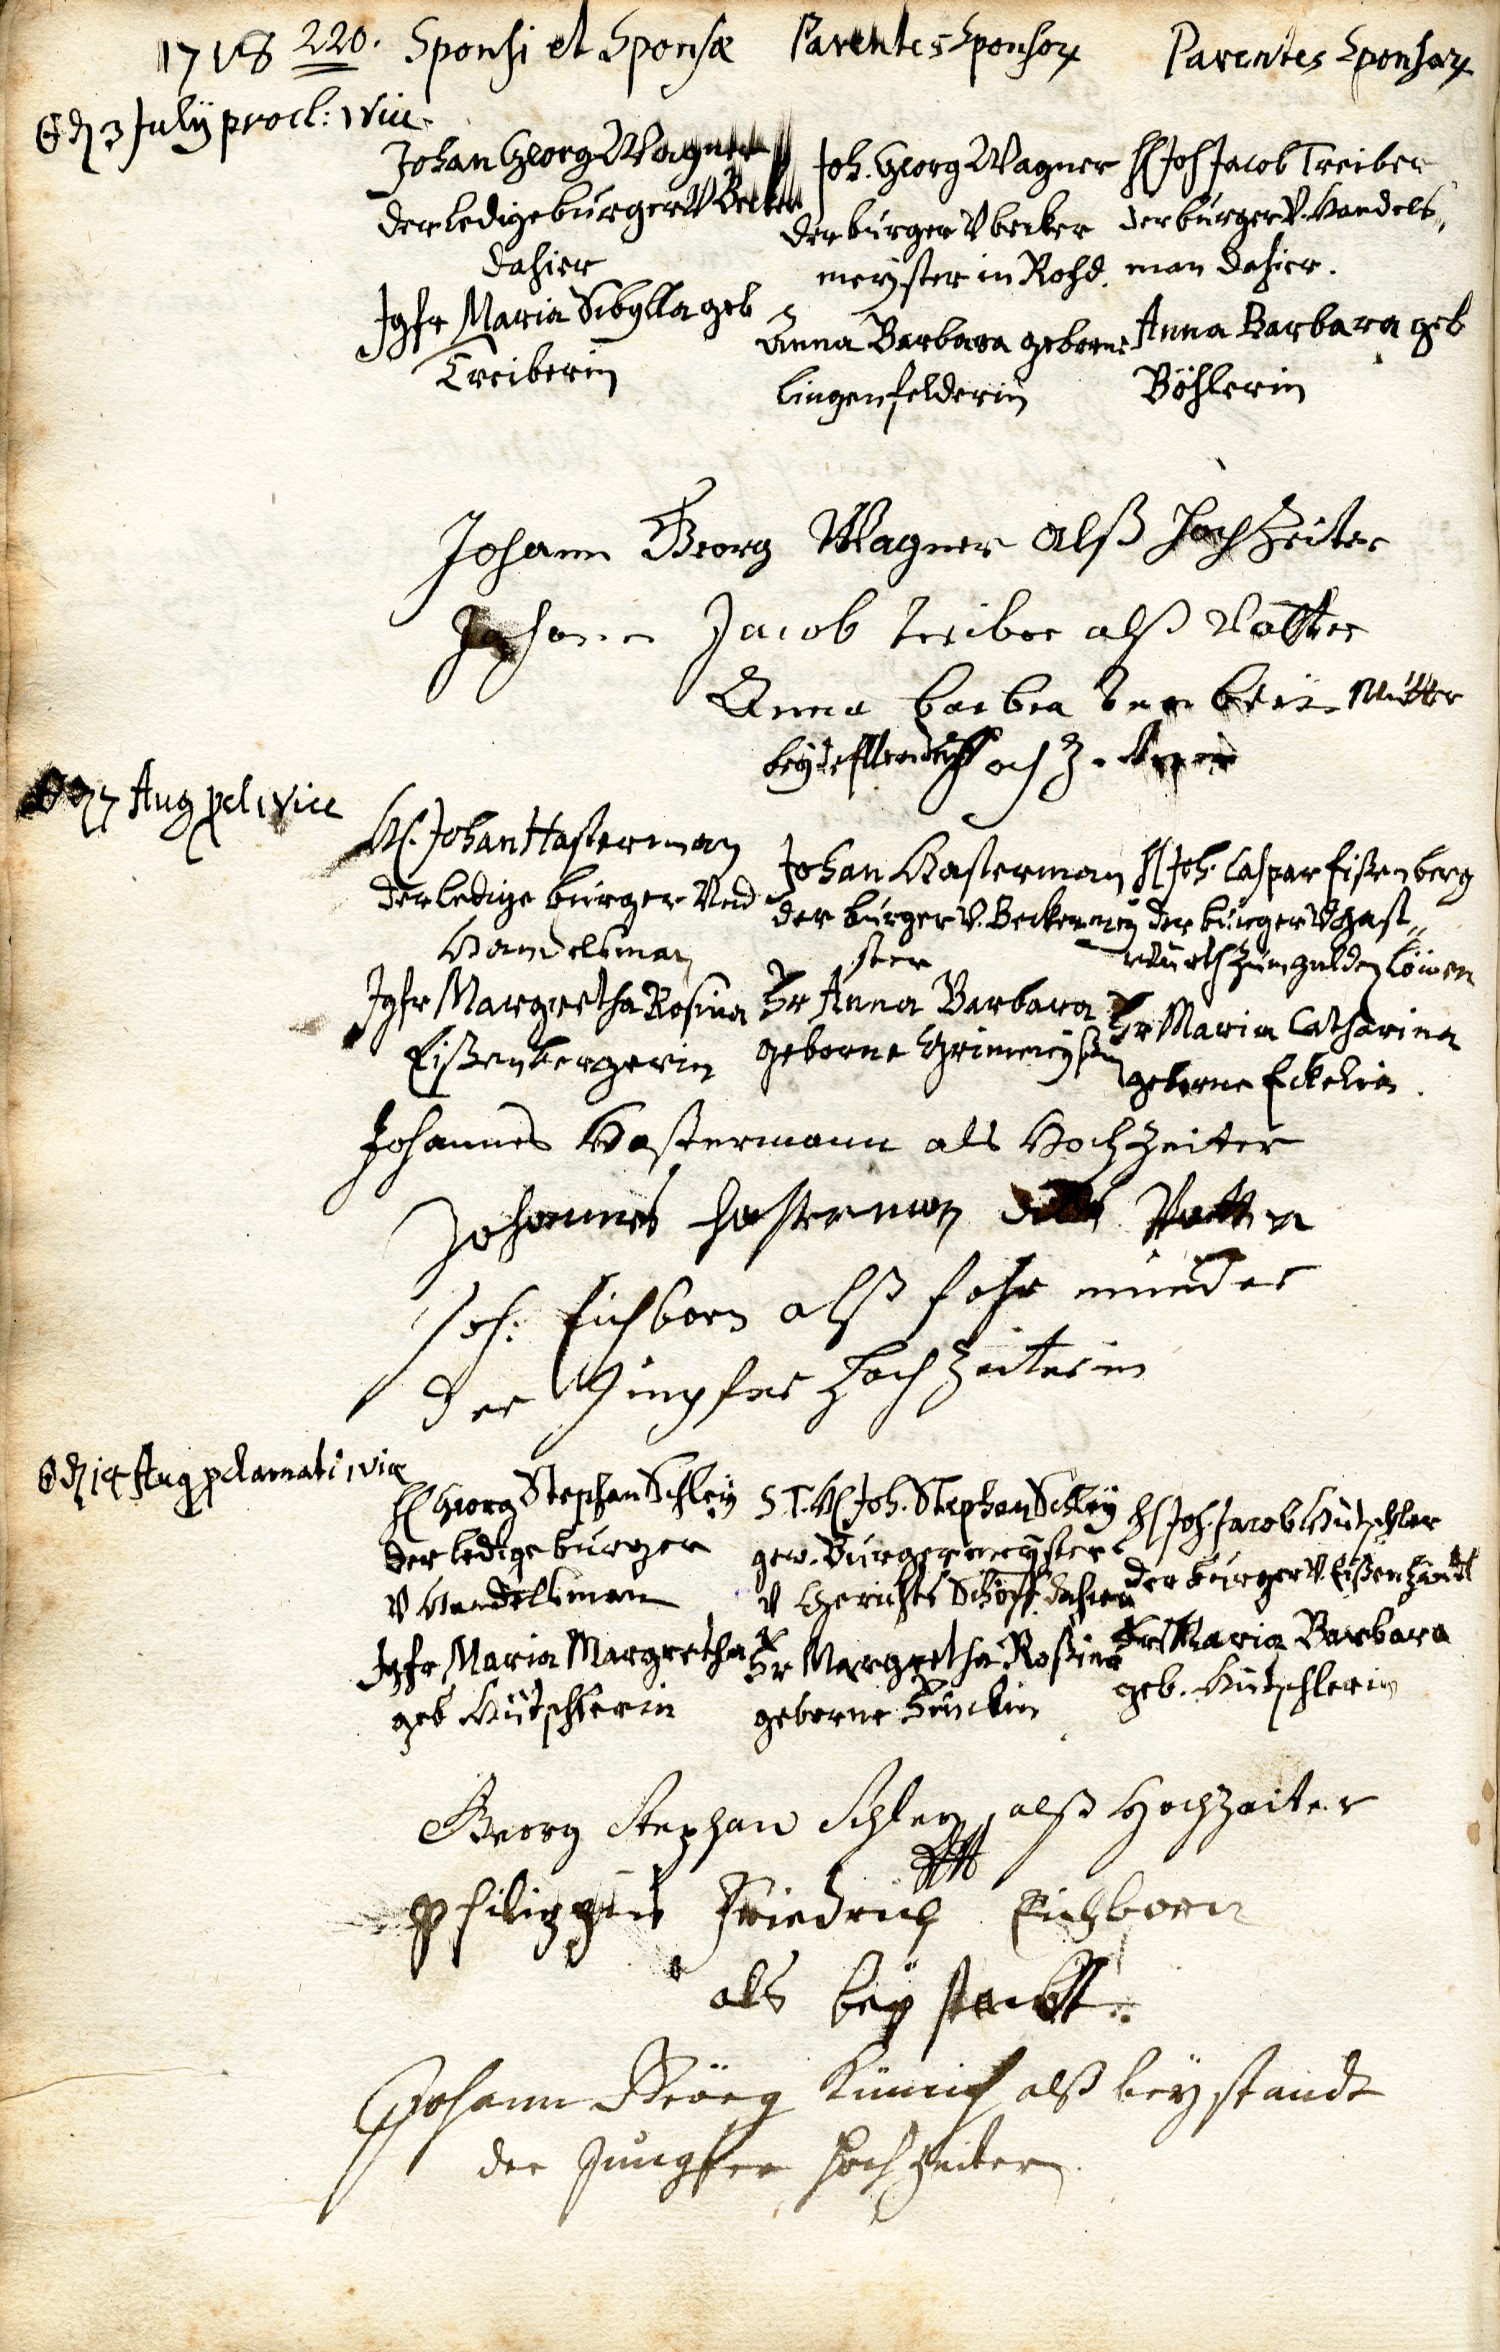 1718 220. Sponsi et Sponsæ Parentes Sponsor Parentes Sponsar
3 July procl: 1 vic.
Johan Georg Wagner
der ledige burger V Becker
dahier
Jgfr Maria Sibylla geb
Treiberin
Joh. Georg Wagner
der burger V becker
meyster in Rohd.
Anna Barbara geborne
Lingenfelderin
H Joh Jacob Treiber
der burger V. Handels„
man dahier.
Anna Barbara geb
Böhlerin
Johann Georg Wagner alß HochZeiter
Johann Jacob treiber alß Vatter
Anna barbra Mutter
7 Aug pcl 1 vice
H. Johan Hasterman
der ledige burger Und
Handelsman
Jgfr Margretha Rosina
Eißenbergerin
Johan Hasterman
der burger V. Beckermey
ster
Fr Anna Barbara
geborne
H Joh. Caspar Eißenberg
der burger V Gast„
wurth zum gulden Löwen
Fr Maria Catharina
geborne Eckelin.
Johannes Hastermann als HochZeiter
Johannes Hasterman Vatter
Joh: Eichborn alß fohr munder
der Jungfer HochZeiterin
14 Aug pclamati 1 vice
H Georg Stephan Schley
der ledige burger
V Handelsman
Jgfr Maria Margretha
geb Hütschlerin
S T. H Joh. Stephan Schley
gew. Burgermeyster
V Gerichts Schöff dahier
Fr Margretha Roßina
geborne
H Joh. Jacob Hütschler
der burger V Eißenhändl
Fr Maria Barbara
geb. Hütschlerin
Georg Stephan Schley, alß Hochzeiter
Philippus Friedrich Eichborn
als bey standt
Johann Georg alß beystandt
der Jungfer HochZeiter